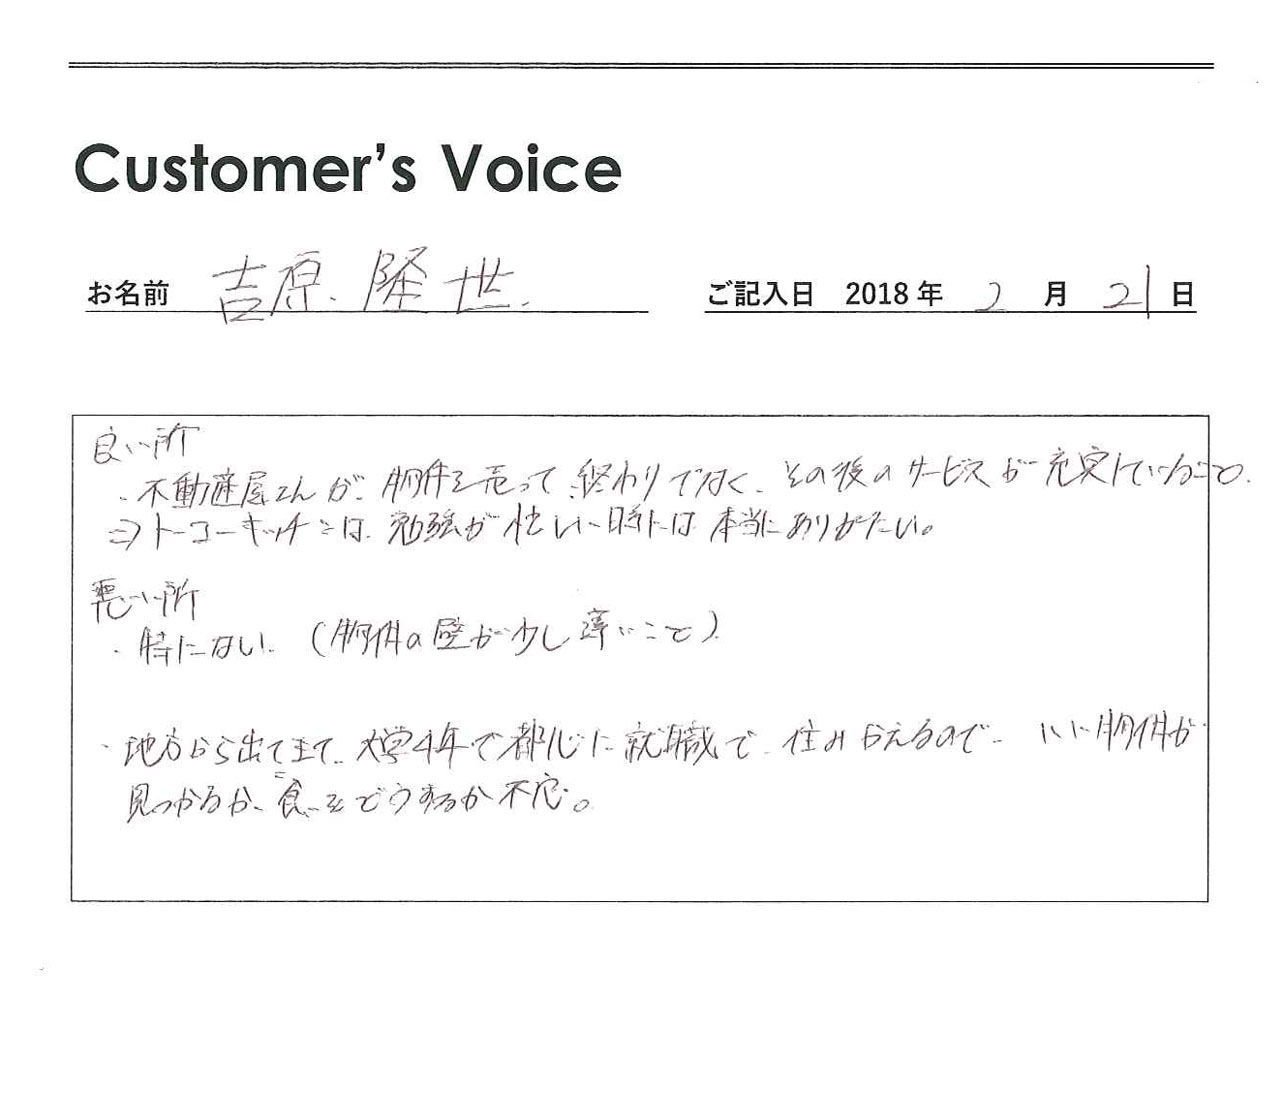 Customer's Voice
お名前 吉原 隆世 ご記入日 2018 年 2 月 21 日
良い所
・不動産屋さんが、物件を売って終わりでなく、その後のサービスが充実していること。
⇒トーコーキッチンは、勉強が忙しい時には本当にありがたい。
悪い所
・特にない。(物件の壁が少し薄いこと)
・地方から出てきて、大学4年で都心に就職で、住みかえるので、いい物件が
見つかるか、食をどうするか不安。